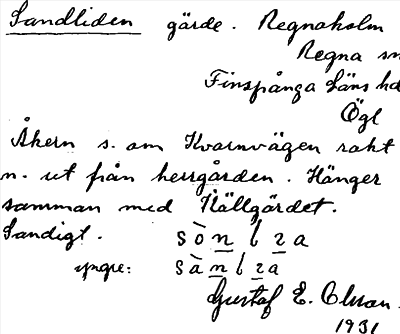 Sandliden gärde. Regnaholm
Regna sn
Finspånga läns hd
Ögl
Åkern s. om Kvarnvägen rakt
n. ut från herrgården. Hänger
samman med Källgärdet.
Sandigt. sònlza
yngre: sànlza
Gustaf E. Olsson.
1931